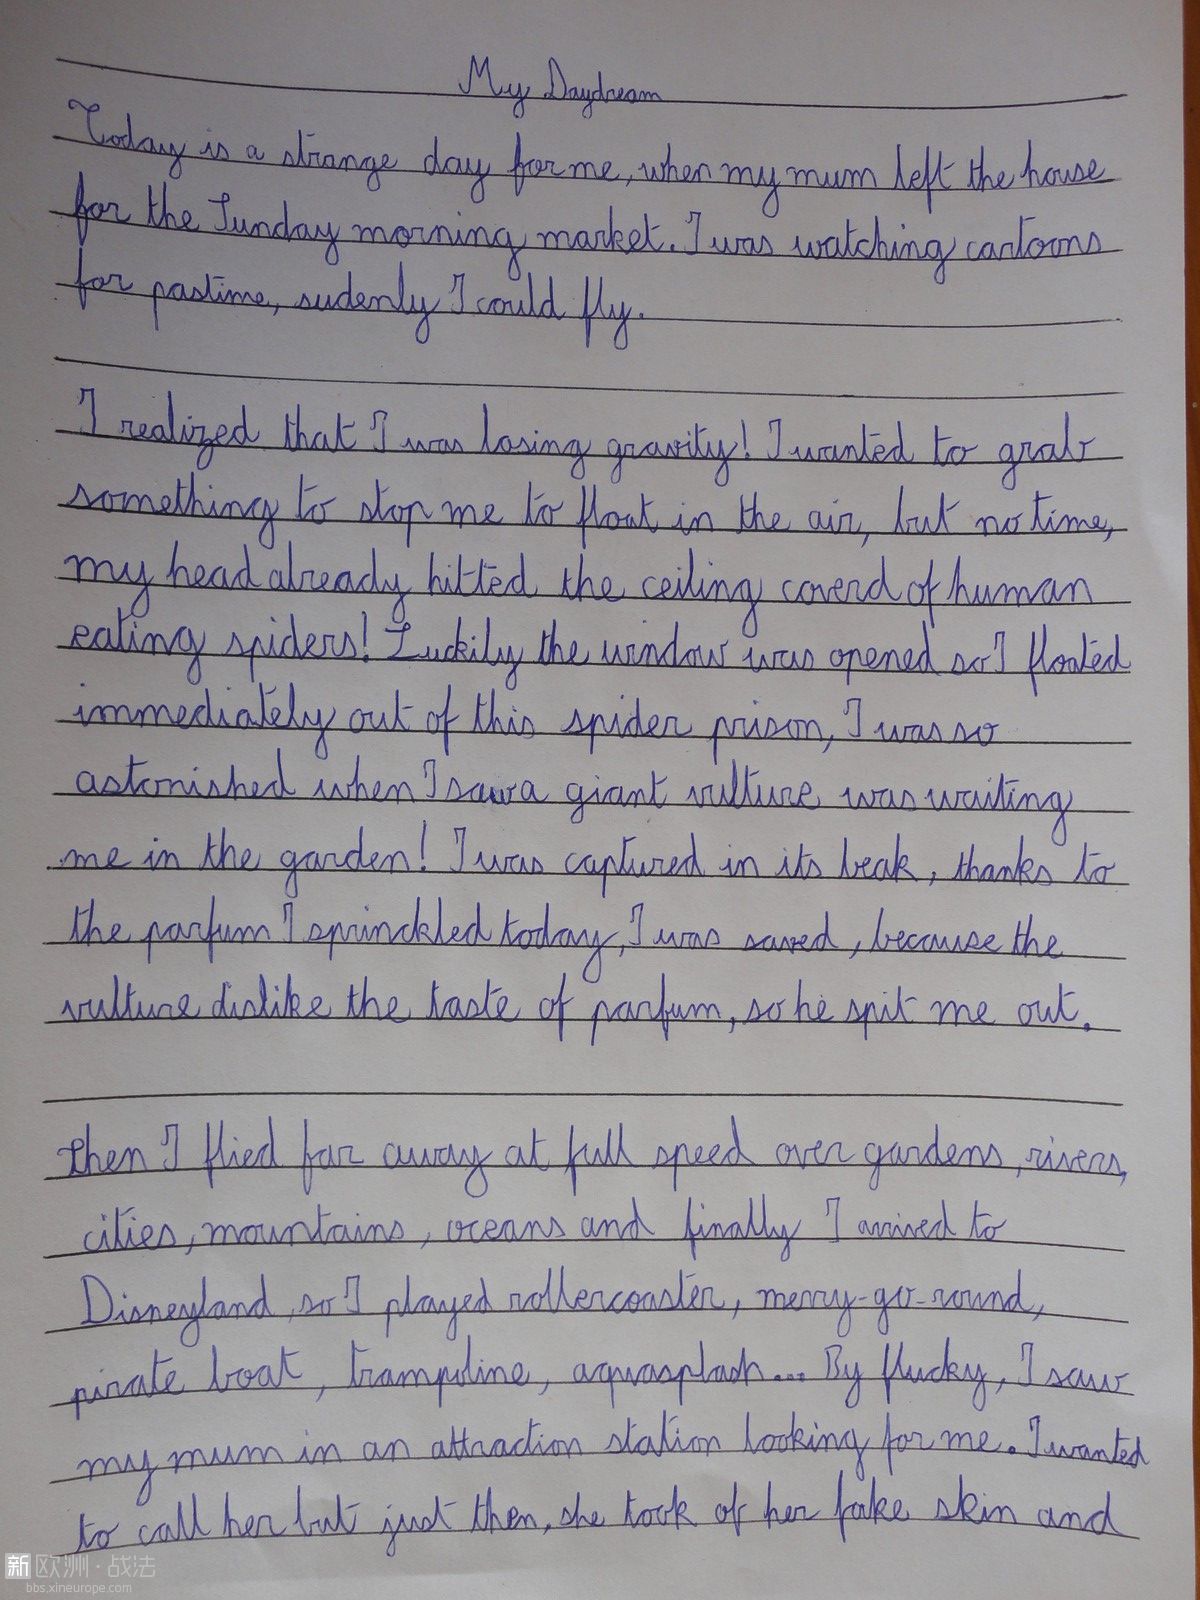 My Daydream
Today is a strange day for me, when my mum left the house
for the Sunday morning market. I was watching cartoons
for pastime, sudenly I could fly.
I realized that I was losing gravity! I wanted to grab
something to stop me to float in the air, but no time,
my head already hitted the ceiling coverd of human
eating spiders! Luckily the window was opened so I floated
immediately out of this spider prison, I was so
astonished when I saw a giant vulture was waiting
me in the garden! I was captured in its beak, thanks to
the parfum I sprinckled today, I was saved, because the
vulture dislike the taste of parfum, so he spit me out.
then I flied far away at full speed over gardens, rivers,
cities, mountains, oceans and finally I arrived to
Disneyland, so I played rollercoaster, merry-go-round,
pirate boat, trampoline, aquasplash... By flucky, I saw
my mum in an attraction station looking for me. I wanted
to call her but just then, she took of her fake skin and
新欧洲·战法
bbs.xineurope.com